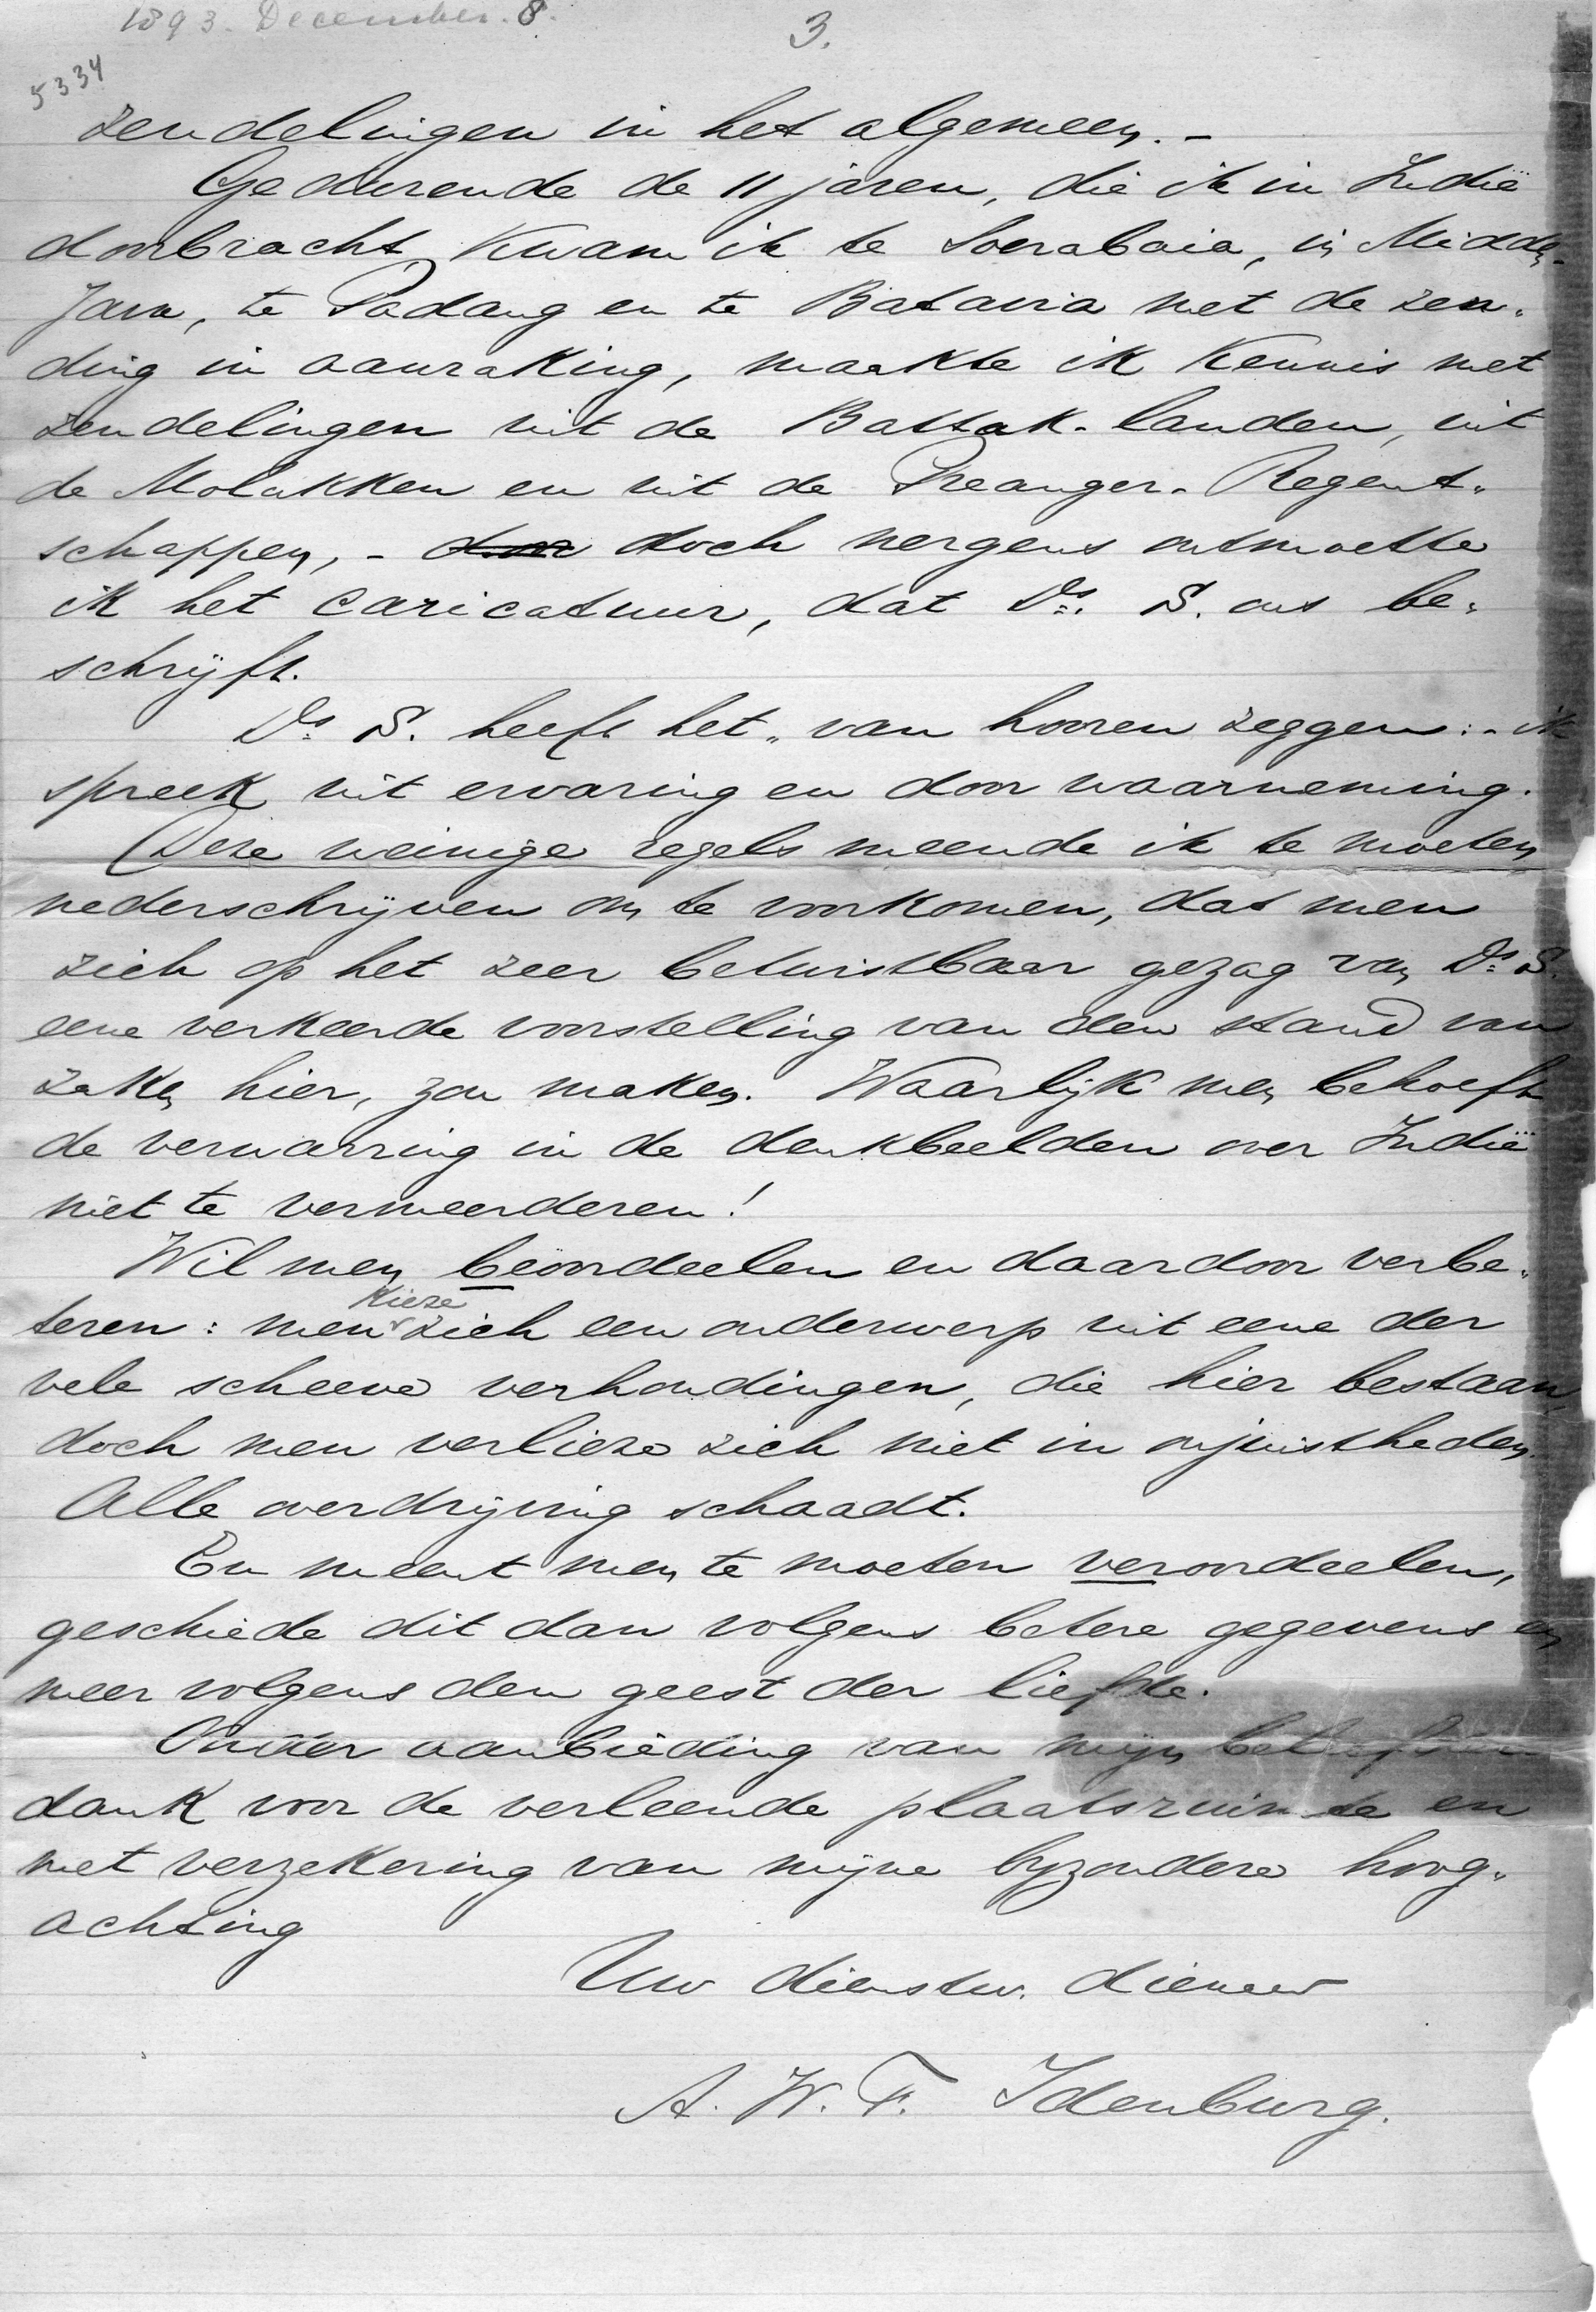 1893. December. 8.
3.
5334
zendelingen in het algemeen. -
Gedurende de 11 jaren, die ik in Indië
doorbracht, kwam ik te Soerabaia, in Midden-
Java, te Padang en te Batavia met de zen-
ding in aanraking, maakte ik kennis met
zendelingen uit de Battak-landen, uit
de Molukken en uit de Preanger-Regent-
schappen, - doch nergens ontmoette
ik het caricatuur, dat Ds. S. ons be-
schrijft.
Ds. S. heeft het „van hooren zeggen: - ik
spreek uit ervaring en door waarneming.
Deze weinige regels meende ik te moeten
nederschrijven om te voorkomen, dat men
zich op het zeer betwistbaar gezag van Ds. S.
eene verkeerde voorstelling van den stand van
zaken hier, zou maken. Waarlijk men behoeft
de verwarring in de denkbeelden over Indië
niet te vermeerderen!
Wil men beöordeelen en daardoor verbe-
kieze
teren: men zich een onderwerp uit eene der
vele scheeve verhoudingen, die hier bestaan,
doch men verlieze zich niet in onjuistheden.
Alle overdrijving schaadt.
En meent men te moeten veroordeelen,
geschiede dit dan volgens betere gegevens en
meer volgens den geest der liefde.
Onder aanbieding van mijn
dank voor de verleende plaatsruimte en
met verzekering van mijne byzondere hoog-
achting
Uw dienstw. dienaar
A. W. F. Idenburg.